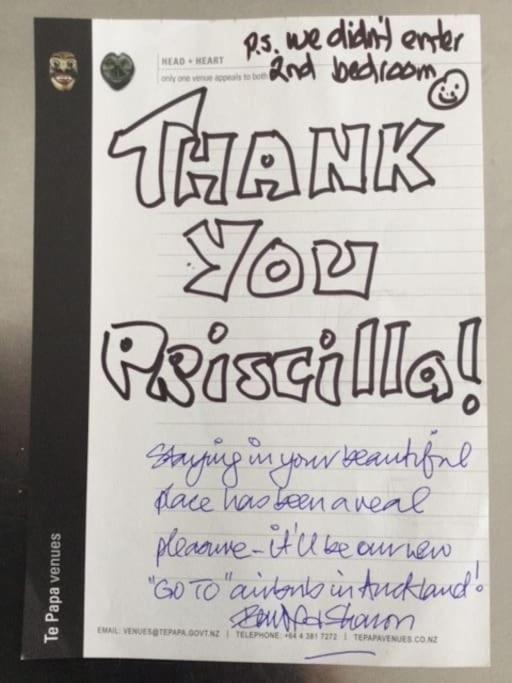 p.s. we didn't enter
2nd bedroom
HEAD + HEART
only one venue appeals to both
THANK
YOU
Priscilla!
Staying in your beautiful
place has been a real
pleasure - it'll be our new
"GO TO" airbnb in Auckland!
Sharon
EMAIL: VENUES@TEPAPA.GOVT.NZ | TELEPHONE: +64 4 381 7272 | TEPAPAVENUES.CO.NZ
Te Papa venues